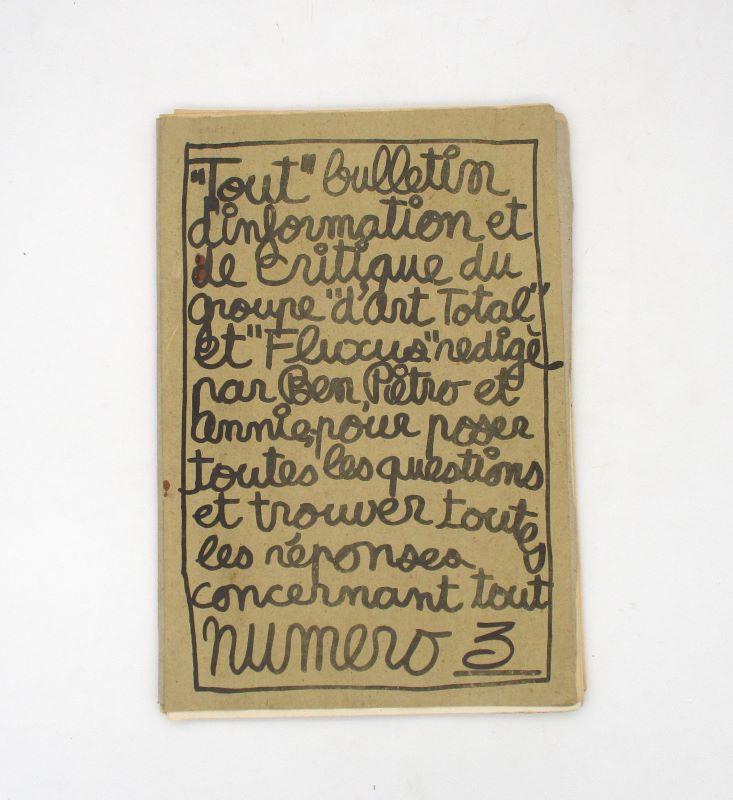 "Tout" bulletin
d'information et
de critique du
groupe "d'Art Total"
et "Fluxus" redigè
par Ben, Pietro et
Annie, pour poser
toutes les questions
et trouver toutes
les réponses
concernant tout
numero 3